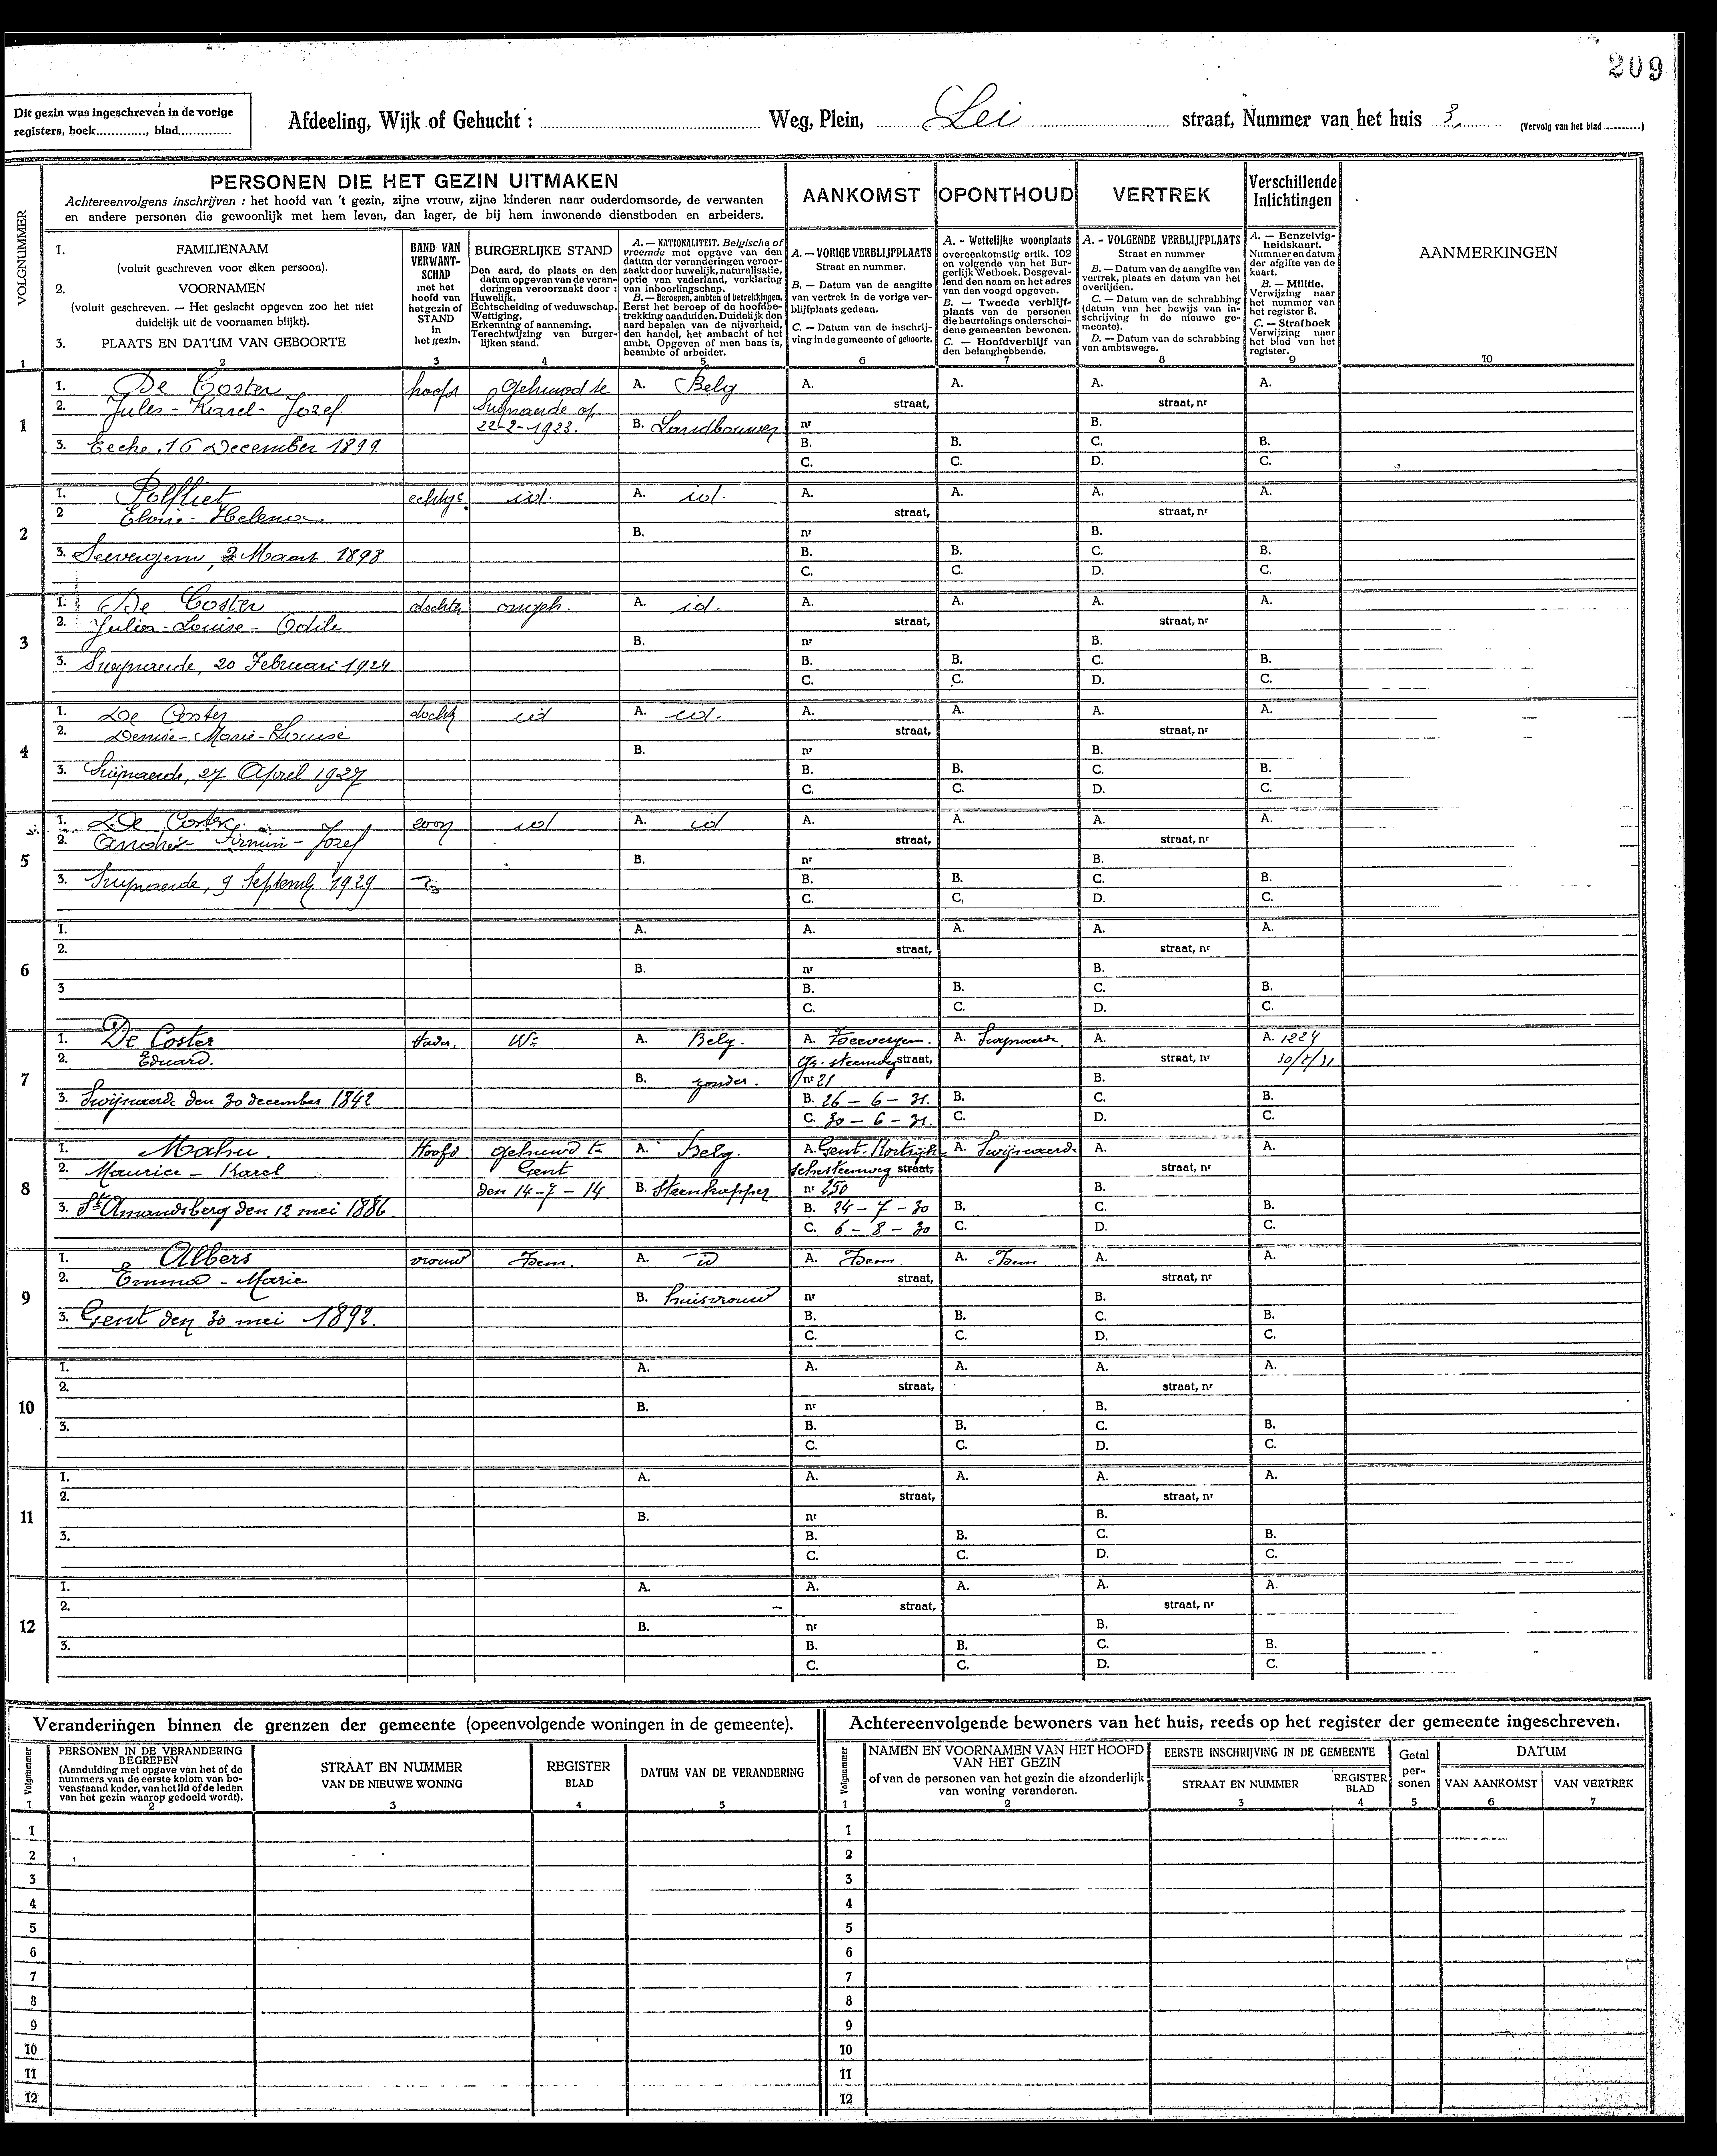 209
Dit gezin was ingeschreven in de vorige
registers, boek............, blad.............
Afdeeling, Wijk of Gehucht : Weg, Plein, Lei straat, Nummer van het huis 3, (Vervolg van het blad .........)
VOLGNUMMER
PERSONEN DIE HET GEZIN UITMAKEN
Achtereenvolgens inschrijven : het hoofd van 't gezin, zijne vrouw, zijne kinderen naar ouderdomsorde, de verwanten
en andere personen die gewoonlijk met hem leven, dan lager, de bij hem inwonende dienstboden en arbeiders.
AANKOMST
OPONTHOUD
VERTREK
Verschillende
Inlichtingen
AANMERKINGEN
1. FAMILIENAAM
(voluit geschreven voor elken persoon).
2. VOORNAMEN
(voluit geschreven. — Het geslacht opgeven zoo het niet
duidelijk uit de voornamen blijkt).
3. PLAATS EN DATUM VAN GEBOORTE
BAND VAN
VERWANT-
SCHAP
met het
hoofd van
het gezin of
STAND
in
het gezin.
BURGERLIJKE STAND
Den aard, de plaats en den
datum opgeven van de veran-
deringen veroorzaakt door :
Huwelijk.
Echtscheiding of weduwschap.
Wettiging.
Erkenning of aanneming.
Terechtwizing van burger-
lijken stand.
A. — NATIONALITEIT. Belgische of
vreemde met opgave van den
datum der veranderingen veroor-
zaakt door huwelijk, naturalisatie,
optie van vaderland, verklaring
van inboorlingschap.
B. — Beroepen, ambten of betrekkingen.
Eerst het beroep of de hoofdbe-
trekking aanduiden. Duidelijk den
aard bepalen van de nijverheid,
den handel, het ambacht of het
ambt. Opgeven of men baas is,
beambte of arbeider.
A. — VORIGE VERBLIJFPLAATS
Straat en nummer.
B. — Datum van de aangifte
van vertrek in de vorige ver-
blijfplaats gedaan.
C. — Datum van de inschrij-
ving in de gemeente of geboorte.
A. - Wettelijke woonplaats
overeenkomstig artik. 102
en volgende van het Bur-
gerlijk Wetboek. Desgeval-
lend den naam en het adres
van den voogd opgeven.
B. — Tweede verblijf-
plaats van de personen
die beurtelings onderschei-
dene gemeenten bewonen.
C. — Hoofdverblijf van
den belanghebbende.
A. - VOLGENDE VERBLIJFPLAATS
Straat en nummer
B. — Datum van de aangifte van
vertrek, plaats en datum van het
overlijden.
C. — Datum van de schrabbing
(datum van het bewijs van in-
schrijving in de nieuwe ge-
meente).
D. — Datum van de schrabbing
van ambtswege.
A. — Eenzelvig-
heidskaart.
Nummer en datum
der afgifte van de
kaart.
B. — Militie.
Verwijzing naar
het nummer van
het register B.
C. — Strafboek
Verwijzing naar
het blad van het
register.
1 2 3 4 5 6 7 8 9 10
1. De Coster hoofd Gehuwd te A. Belg A. A. A. A.
2. Jules - Karel - Jozef. Swijnaerde op straat, straat, nr
1 22-2-1923. B. Landbouwer nr B.
3. Eecke, 16 December 1899. B. B. C. B.
C. C. D. C.
1. Polfliet echtge. id. A. id. A. A. A. A.
2 Eloise - Helena straat, straat, nr
2 B. nr B.
3. Seevergem, 2 Maart 1898 B. B. C. B.
C. C. D. C.
1. De Coster dochter ongeh. A. id. A. A. A. A.
2. Julia - Louise - Odile straat, straat, nr
3 B. nr B.
3. Swijnaerde, 20 Februari 1924 B. B. C. B.
C. C. D. C.
1. De Coster docht id A. id. A. A. A. A.
2. Denise - Marie - Louise straat, straat, nr
4 B. nr B.
3. Swijnaerde, 27 April 1927 B. B. C. B.
C. C. D. C.
1. De Coster zoon id A. id A. A. A. A.
2. André - Firmin - Jozef straat, straat, nr
5 B. nr B.
3. Swijnaerde, 9 Septemb 1929 B. B. C. B.
C. C, D. C.
1. A. A. A. A. A.
2. straat, straat, nr
6 B. nr B.
3 B. B. C. B.
C. C. D. C.
1. De Coster Vader. Wr A. Belg. A. Zoevergem. A. Swijnaerde. A. A. 1224
2. Eduard. Gr. steenweg straat, straat, nr 30/7/31
7 B. zonder. nr 21 B.
3. Swijnaerde den 30 december 1842 B. 26 - 6 - 31. B. C. B.
C. 30 - 6 - 31. C. D. C.
1. Mahu. Hoofd gehuwd te A. Belg. A. Gent. Kortrijk- A. Swijnaerde A. A.
2. Maurice - Karel Gent schesteenweg straat, straat, nr
8 den 14-7-14 B. Steenkapper nr 250 B.
3. St Amandsberg den 12 mei 1886. B. 24 - 7 - 30 B. C. B.
C. 6 - 8 - 30 C. D. C.
1. Albers vrouw Idem. A. id A. Idem. A. Idem A. A.
2. Emma - Marie straat, straat, nr
9 B. huisvrouw nr B.
3. Gent den 30 mei 1892. B. B. C. B.
C. C. D. C.
1. A. A. A. A. A.
2. straat, straat, nr
10 B. nr B.
3. B. B. C. B.
C. C. D. C.
1. A. A. A. A. A.
2. straat, straat, nr
11 B. nr B.
3. B. B. C. B.
C. C. D. C.
1. A. A. A. A. A.
2. straat, straat, nr
12 B. nr B.
3. B. B. C. B.
C. C. D. C.
Veranderingen binnen de grenzen der gemeente (opeenvolgende woningen in de gemeente).
Volgnummer
PERSONEN IN DE VERANDERING
BEGREPEN
(Aanduiding met opgave van het of de
nummers van de eerste kolom van bo-
venstaand kader, van het lid of de leden
van het gezin waarop gedoeld wordt).
STRAAT EN NUMMER
VAN DE NIEUWE WONING
REGISTER
BLAD
DATUM VAN DE VERANDERING
1 2 3 4 5
1
2
3
4
5
6
7
8
9
10
11
12
Achtereenvolgende bewoners van het huis, reeds op het register der gemeente ingeschreven.
Volgnummer
NAMEN EN VOORNAMEN VAN HET HOOFD
VAN HET GEZIN
of van de personen van het gezin die afzonderlijk
van woning veranderen.
EERSTE INSCHRIJVING IN DE GEMEENTE
STRAAT EN NUMMER
REGISTER
BLAD
Getal
per-
sonen
DATUM
VAN AANKOMST
VAN VERTREK
1 2 3 4 5 6 7
1
2
3
4
5
6
7
8
9
10
11
12